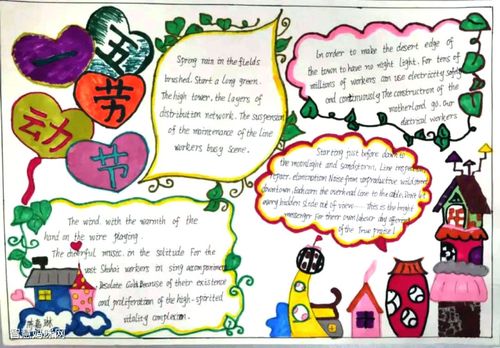 五一
劳
动
节
Spring rain in the fields
brushed. Start a long green.
The high tower. the layers of
distribution network. The suspension
of the maintenance of the line
workers busy scene.
In order to make the desert edge of
the town to have no night light. For tens of
millions of workers can use electricity safely
and continuously The construction of the
motherland go. Our
electrical workers
Starting just before dawn to
the moonlight and sandstorm. Line inspection
repair. elimination Noise from unproductive wild
downtown. the overhead line to the cable.
every hidden side out of view. This is the bright
messenger For their own labour day
of the True praise!
The wind with the warmth of the
hand on the wire playing.
The cheerful music. in the solitude For the
vast workers in sing accompaniment
Desolate Gobi Because of their existence
and proliferation of the high-spirited
vitality complexion.
智慧妈咪网